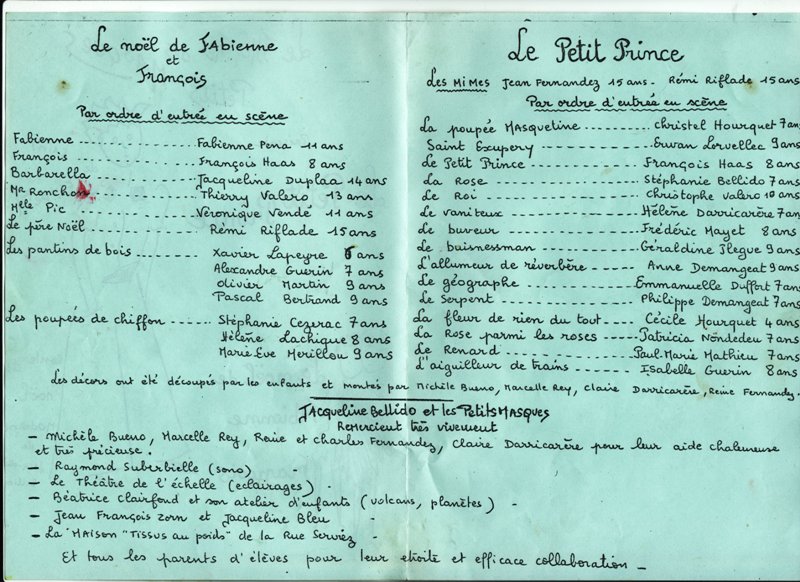 Le noël de Fabienne
et
François
Par ordre d'entrée en scène
Fabienne ------------ Fabienne Pena 11 ans
François ------------ François Haas 8 ans
Barbarella ------------ Jacqueline Duplaa 14 ans
Mr Ronchon ------------ Thierry Valero 13 ans
Melle Pic ------------ Véronique Vendé 11 ans
Le père Noël ------------ Rémi Riflade 15 ans
Les pantins de bois ------ Xavier Lapeyre 6 ans
Alexandre Guerin 7 ans
Olivier Martin 9 ans
Pascal Bertrand 9 ans
Les poupées de chiffon ------ Stéphanie Cezerac 7 ans
Hélène Lachique 8 ans
Marie Eve Merillou 9 ans
Le Petit Prince
Les Mimes Jean Fernandez 15 ans - Rémi Riflade 15 ans
Par ordre d'entrée en scène
La poupée Masquetine -------- Christel Hourquet 7 ans
Saint Exupery -------- Erwan Lorvellec 9 ans
Le Petit Prince -------- François Haas 8 ans
La Rose -------- Stéphanie Bellido 7 ans
Le Roi -------- Christophe Valero 10 ans
Le vaniteux -------- Hélène Darricarère 7 ans
Le buveur -------- Frédéric Mayet 8 ans
Le buisnessman -------- Géraldine Ilegue 9 ans
L'allumeur de réverbère -------- Anne Demangeat 9 ans
Le géographe -------- Emmanuelle Duffort 7 ans
Le Serpent -------- Philippe Demangeat 7 ans
La fleur de rien du tout -------- Cécile Hourquet 4 ans
La Rose parmi les roses -------- Patricia Nondedeu 7 ans
Le Renard -------- Paul-Marie Mathieu 7 ans
L'aiguilleur de trains -------- Isabelle Guerin 8 ans
Les décors ont été découpés par les enfants et montés par Michèle Bueno, Marcelle Rey, Claire Darricarère, Reine Fernandez.
Jacqueline Bellido et les Petits Masques
Remercient très vivement
- Michèle Bueno, Marcelle Rey, Reine et Charles Fernandez, Claire Darricarère pour leur aide chaleureuse
et très précieuse.
- Raymond Suberbielle (sono) -
- Le Théâtre de l'échelle (eclairages) -
- Béatrice Clairfond et son atelier d'enfants (volcans, planètes) -
- Jean François Zorn et Jacqueline Bleu -
- La Maison "Tissus au poids" de la Rue Serviez -
Et tous les parents d'élèves pour leur etroite et efficace collaboration -